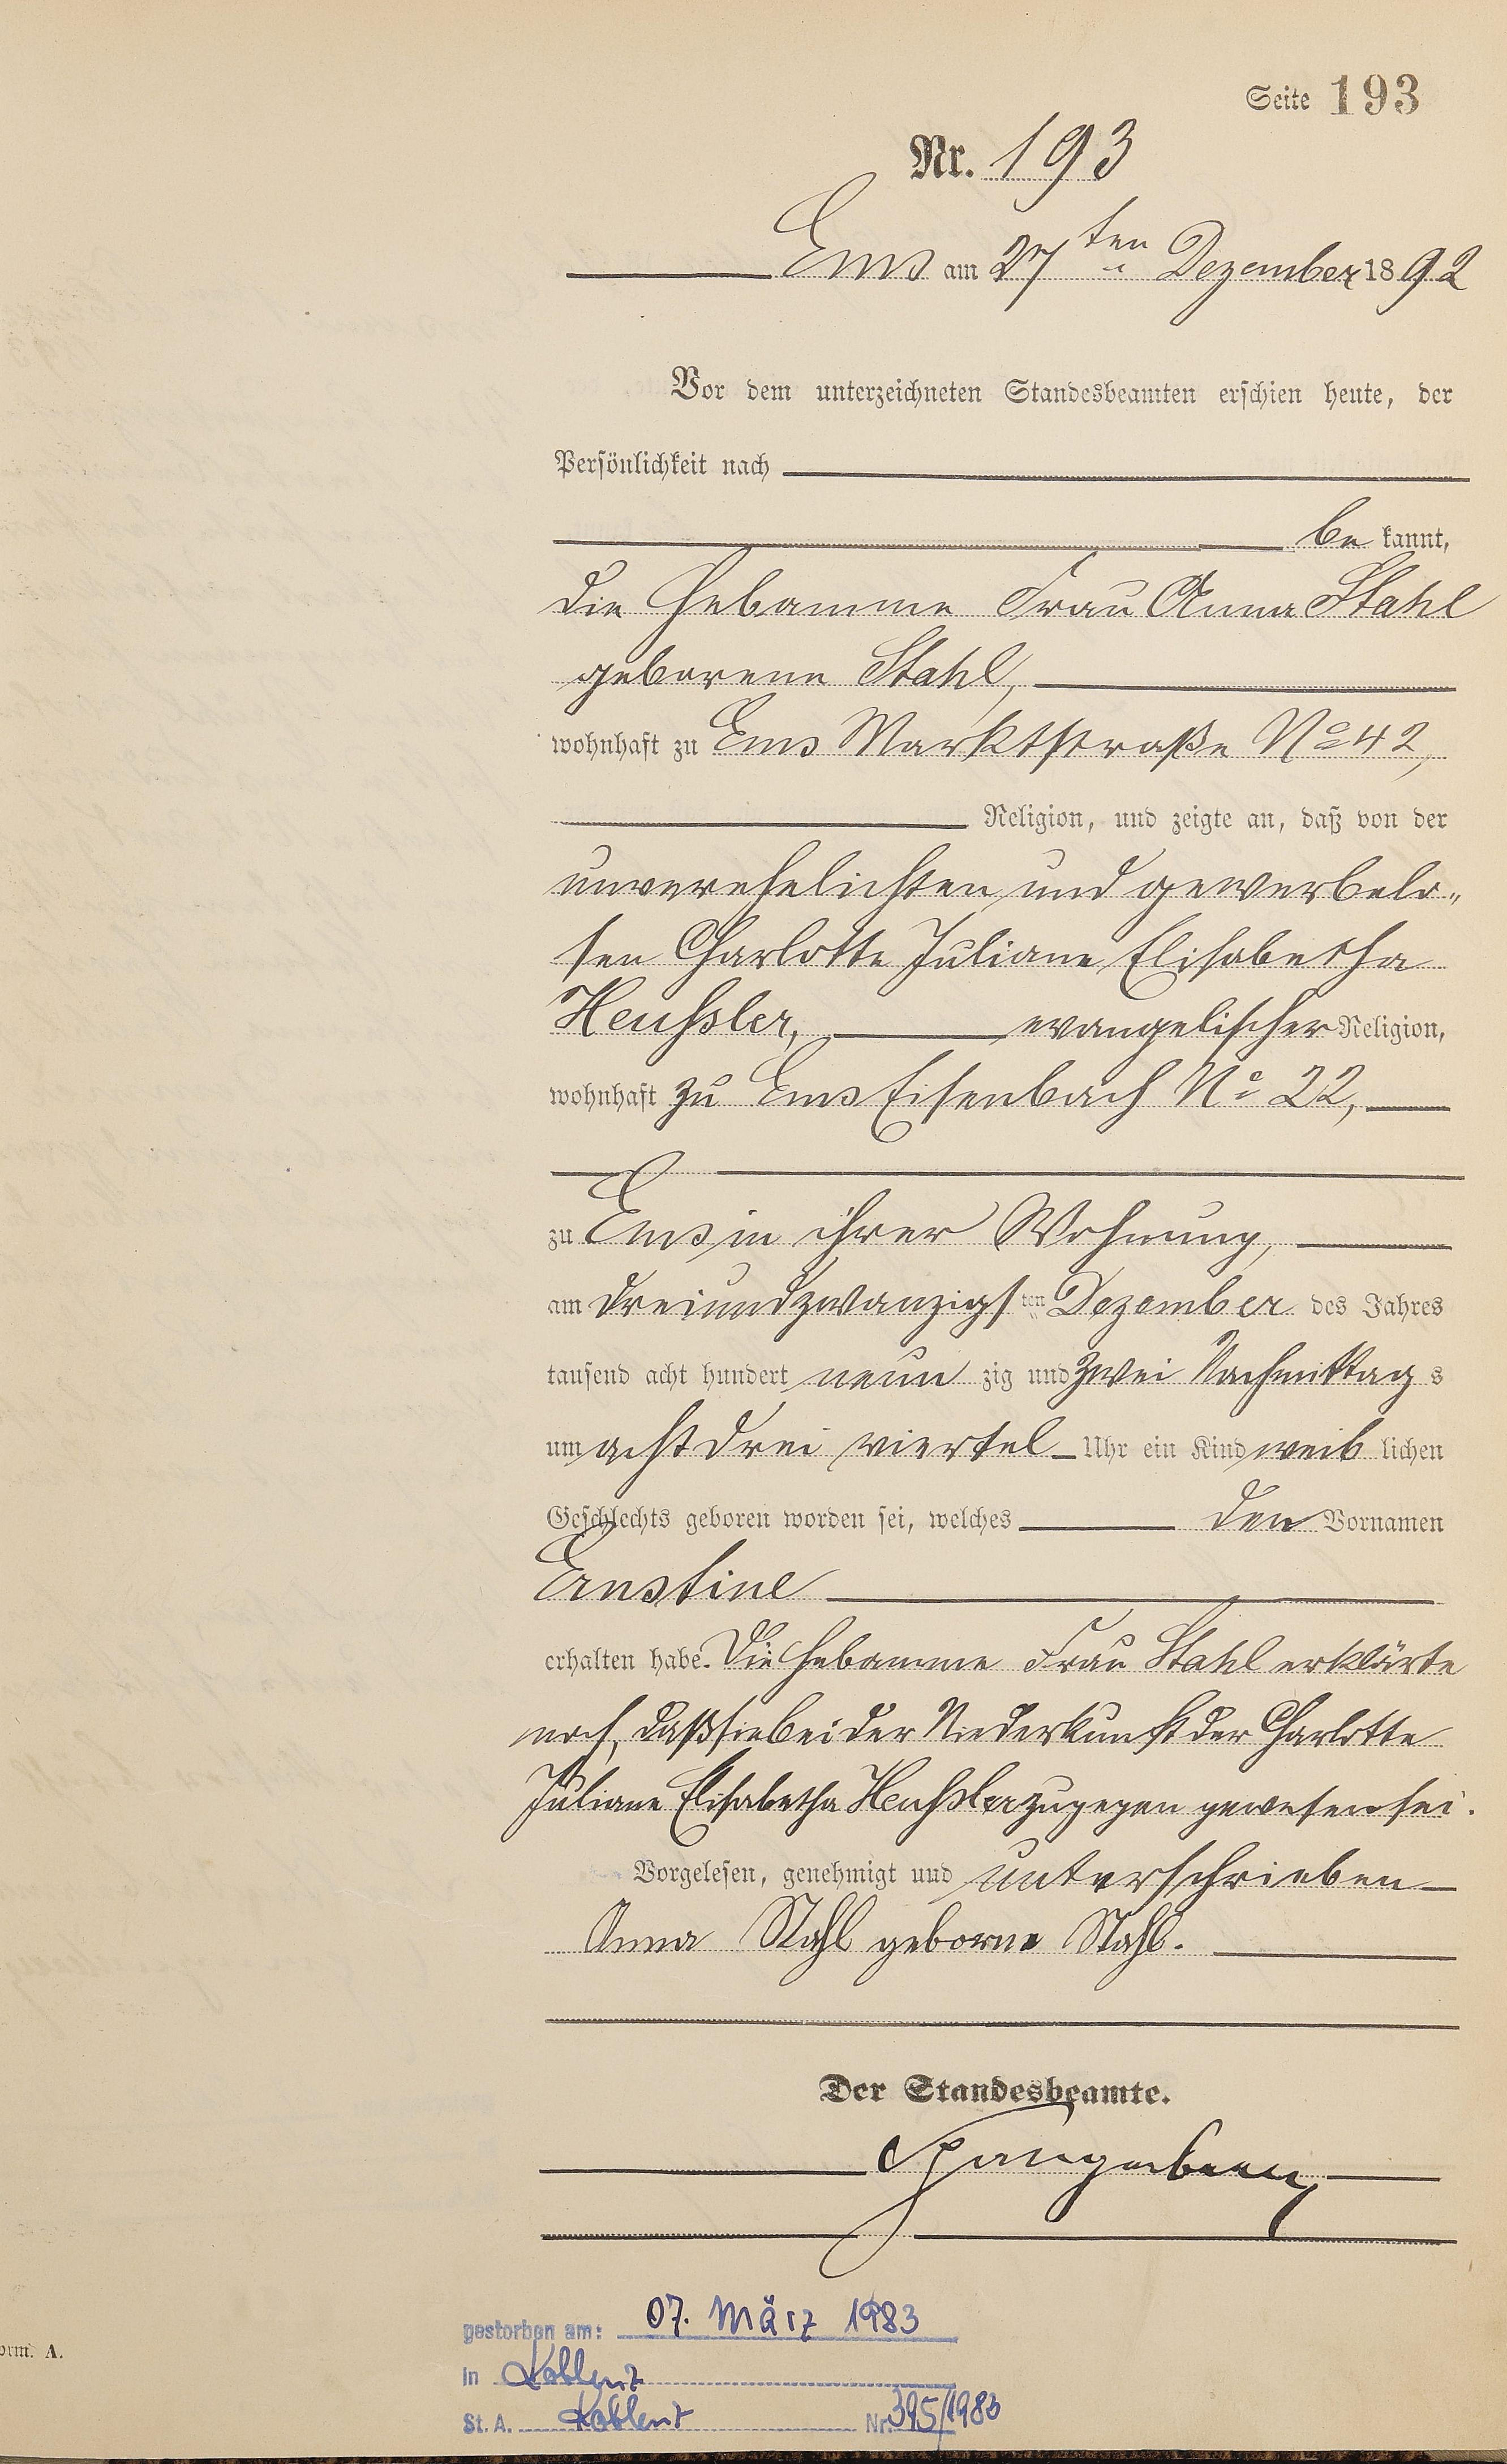 Seite 193
Nr. 193
Ems am 27ten Dezember 1892
Vor dem unterzeichneten Standesbeamten erschien heute, der
Persönlichkeit nach
be kannt,
die Hebamme Frau Anna Stahl
geborene Stahl,
wohnhaft zu Ems Marktstraße No 42,
Religion, und zeigte an, daß von der
unverehelichten und gewerbelo„
sen Charlotte Juliane Elisabetha
Heußler, evangelischer Religion,
wohnhaft zu Ems Eisenbach No 22,
zu Ems in ihrer Wohnung,
am dreiundzwanzigsten Dezember des Jahres
tausend acht hundert neun zig und zwei Nachmittag s
um acht drei viertel Uhr ein Kind weib lichen
Geschlechts geboren worden sei, welches den Vornamen
Ernstine
erhalten habe. Die Hebamme Frau Stahl erklärte
noch, daß sie bei der Niederkunft der Charlotte
Juliane Elisabetha Heußler zugegen gewesen sei.
Vorgelesen, genehmigt und unterschrieben
Anna Stahl geborne Stahl.
Der Standesbeamte.
Spangenberg
gestorben am: 07. März 1983
in Koblenz
St. A. Koblenz Nr. 395/1983
orm. A.